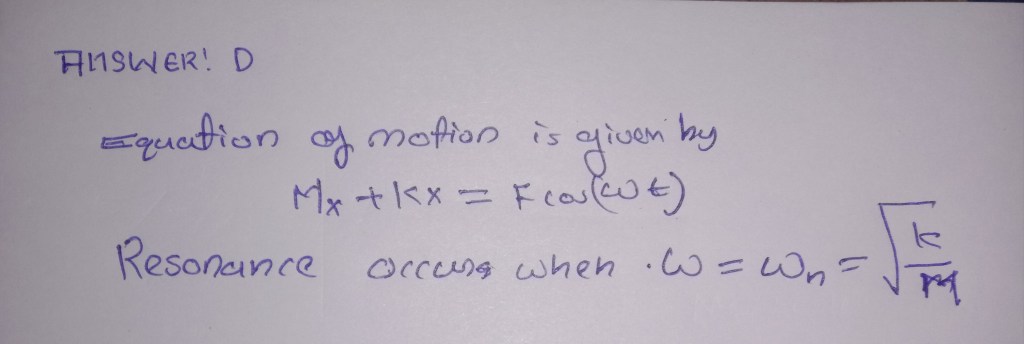 ANSWER! D
Equation of motion is given by
Mx + Kx = F cos(ωt)
Resonance occurs when . ω = ωn = √k/M